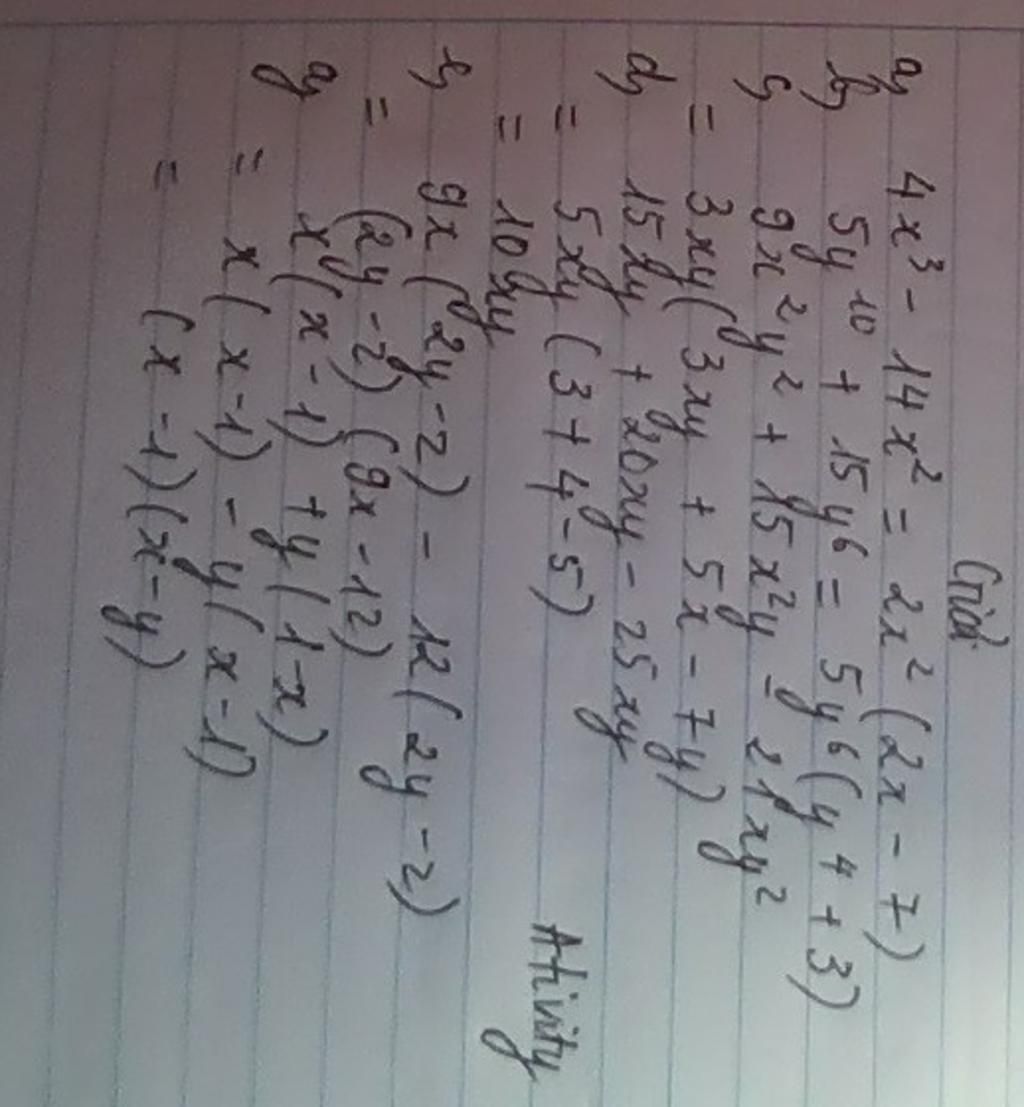 Giải
a, 4x³ - 14x² = 2x²(2x - 7)
b, 5y¹⁰ + 15y⁶ = 5y⁶(y⁴ + 3)
c, 9x²y² + 15x²y - 21xy²
= 3xy(3xy + 5x - 7y)
d, 15xy + 20xy - 25xy
= 5xy(3 + 4 - 5)
= 10xy
Ativity
e, 9x(2y - z) - 12(2y - z)
= (2y - z)(9x - 12)
g, x(x - 1) + y(1 - x)
= x(x - 1) - y(x - 1)
= (x - 1)(x - y)